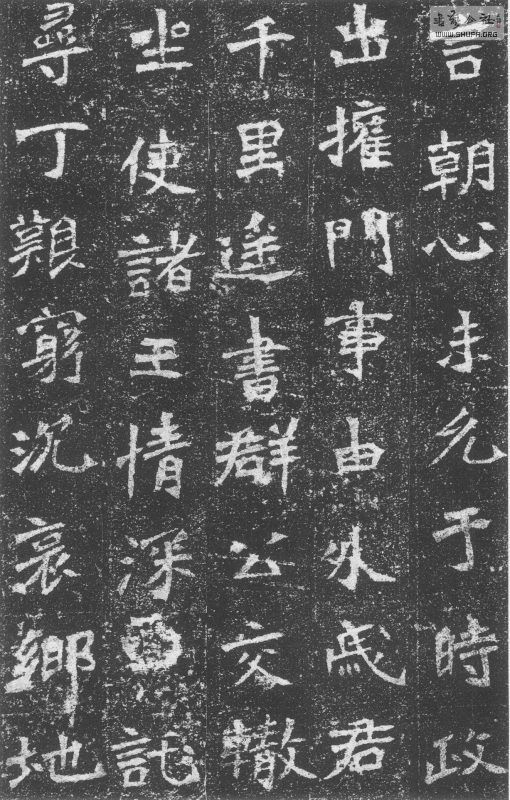 言朝心未允于時政
出權門事由外戚君
千里遥書群公交轍
坐使諸王情深託
尋丁艱窮沉哀鄉地
WWW.SHUFA.ORG